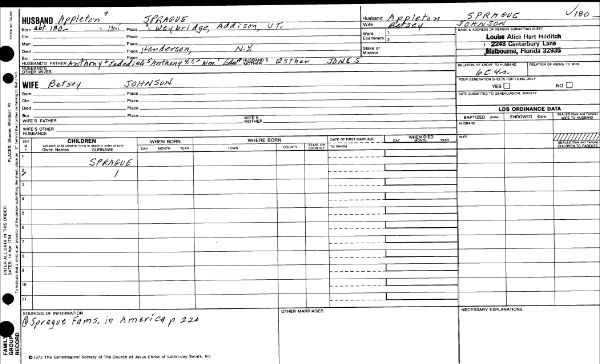 HUSBAND Appleton SPRAGUE
Born abt. 180- Place Weybridge, Addison, VT.
Chr. Place
Marr. Place
Died Place Henderson, N.Y.
Bur. Place
HUSBAND'S FATHER HUSBAND'S MOTHER Esther JONES
HUSBAND'S OTHER WIVES
WIFE Betsey JOHNSON
Born Place
Chr. Place
Died Place
Bur. Place
WIFE'S FATHER WIFE'S MOTHER
WIFE'S OTHER HUSBANDS
Husband Appleton SPRAGUE 180-
Wife Betsey JOHNSON
Ward 1.
Examiners 2.
Stake or Mission
NAME & ADDRESS OF PERSON SUBMITTING SHEET
Louise Alice Hart Hilditch
2243 Canterbury Lane
Melbourne, Florida 32935
RELATION OF ABOVE TO HUSBAND RELATION OF ABOVE TO WIFE
FOUR GENERATION SHEETS FOR FILING ONLY
YES NO
DATE SUBMITTED TO GENEALOGICAL SOCIETY
LDS ORDINANCE DATA
BAPTIZED (Date) ENDOWED (Date) SEALED (Date and Temple) WIFE TO HUSBAND
HUSBAND
WIFE
SEALED (Date and Temple) CHILDREN TO PARENTS
SEX M F
CHILDREN
Given Names SURNAME
WHEN BORN
DAY MONTH YEAR
WHERE BORN
TOWN COUNTY STATE OR COUNTRY
DATE OF FIRST MARRIAGE
TO WHOM
WHEN DIED
DAY MONTH YEAR
1 SPRAGUE
2
3
4
5
6
7
8
9
10
11
SOURCES OF INFORMATION
@ Sprague Fams. in America p 220
OTHER MARRIAGES
NECESSARY EXPLANATIONS
FAMILY GROUP RECORD
©1972 The Genealogical Society of The Church of Jesus Christ of Latter-day Saints, Inc.